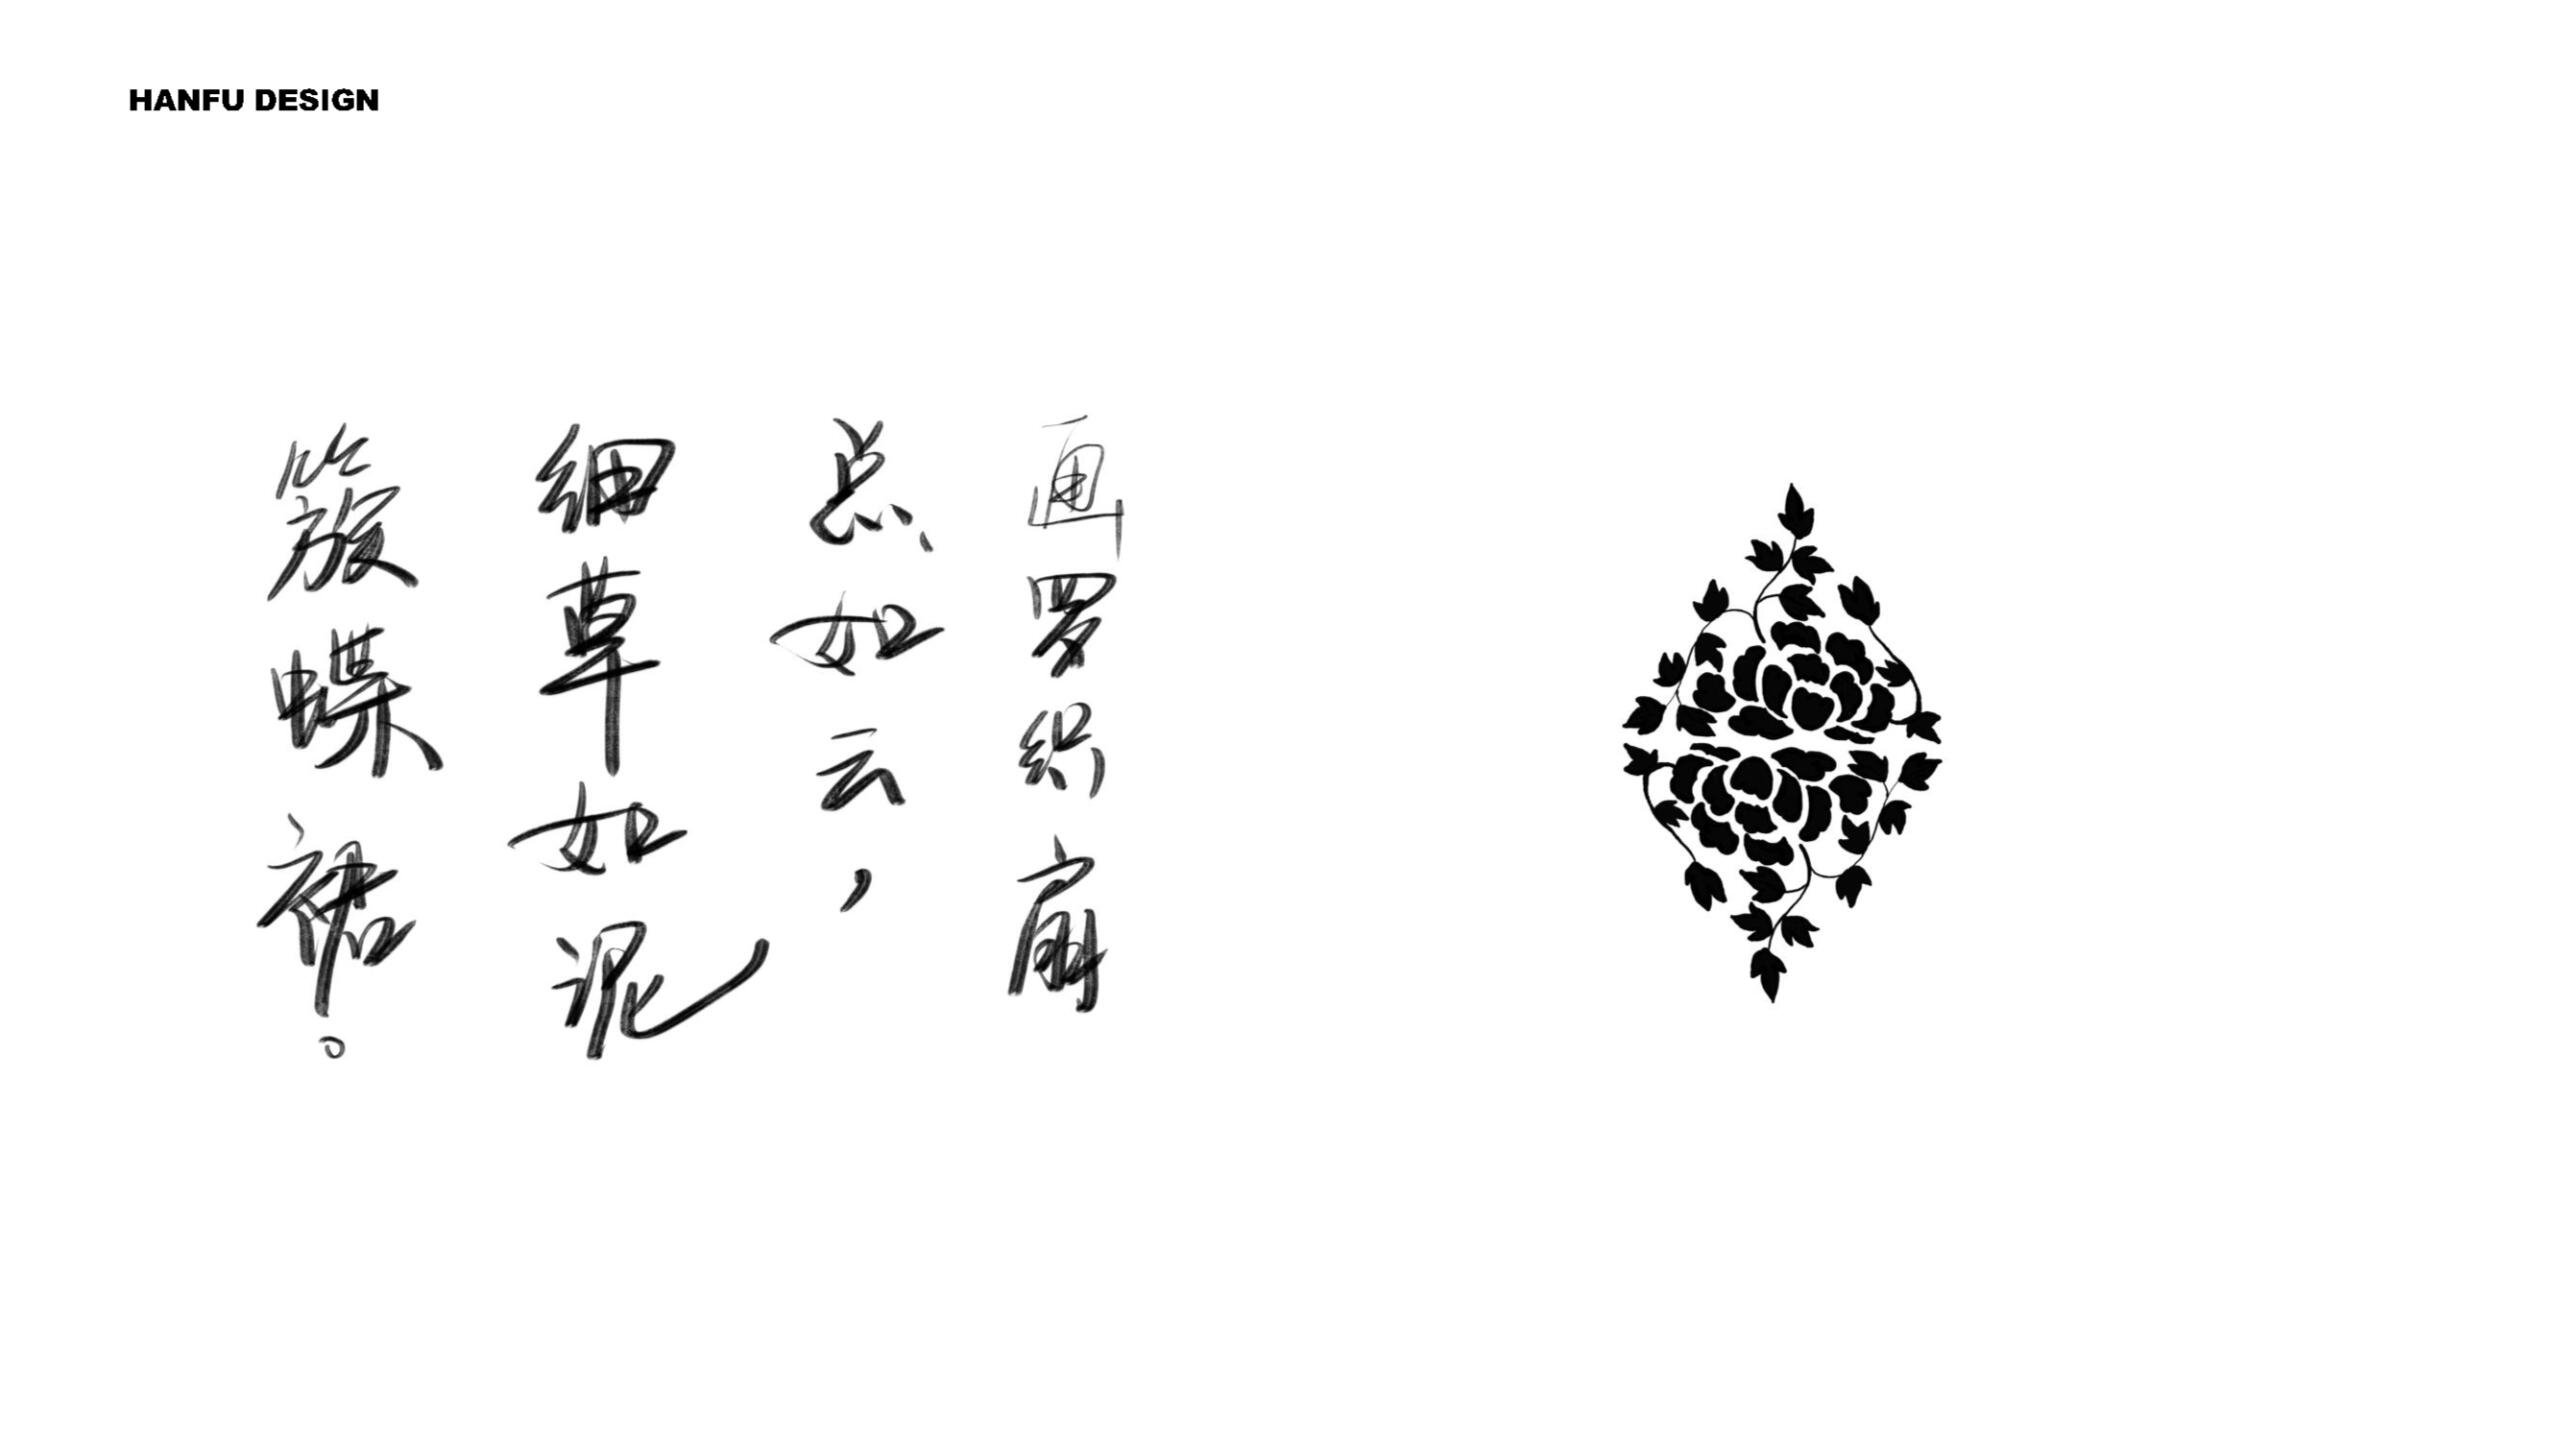 HANFU DESIGN
画罗织扇
总如云，
细草如泥
簇蝶裙。